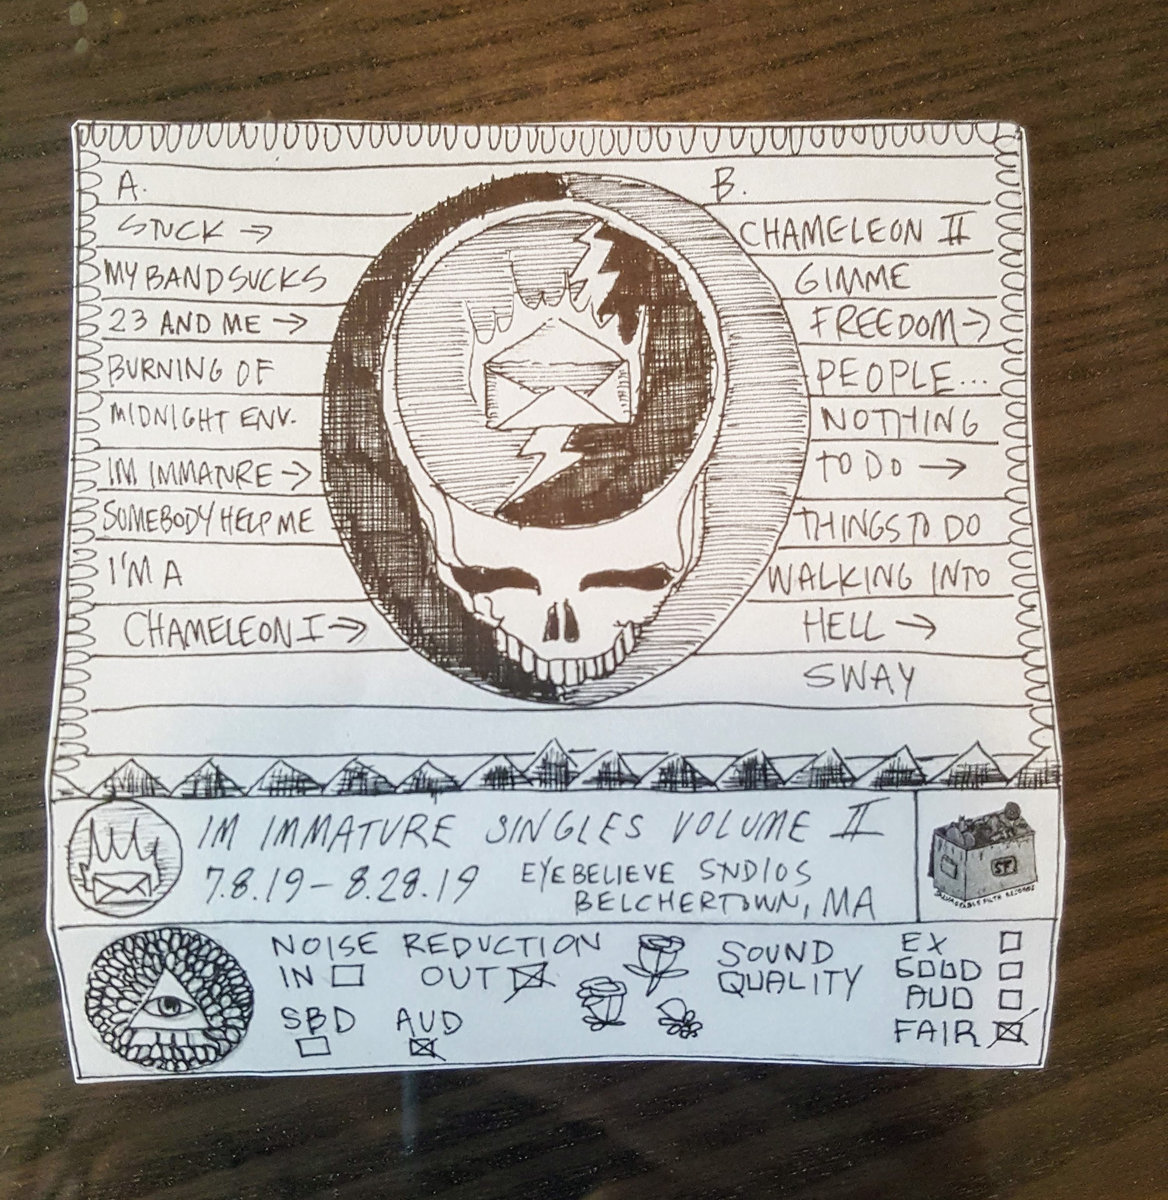 A.
STUCK →
MY BAND SUCKS
23 AND ME →
BURNING OF
MIDNIGHT ENV.
IM IMMATURE →
SOMEBODY HELP ME
I'M A
CHAMELEON I →
B.
CHAMELEON II
GIMME
FREEDOM →
PEOPLE...
NOTHING
TO DO →
THINGS TO DO
WALKING INTO
HELL →
SWAY
IM IMMATURE SINGLES VOLUME II
7.8.19 - 8.28.19 EYEBELIEVE STUDIOS
BELCHERTOWN, MA
SF
SALVAGEABLE FILTH RECORDS
NOISE REDUCTION
IN OUT
SBD AUD
SOUND
QUALITY
EX
GOOD
AUD
FAIR